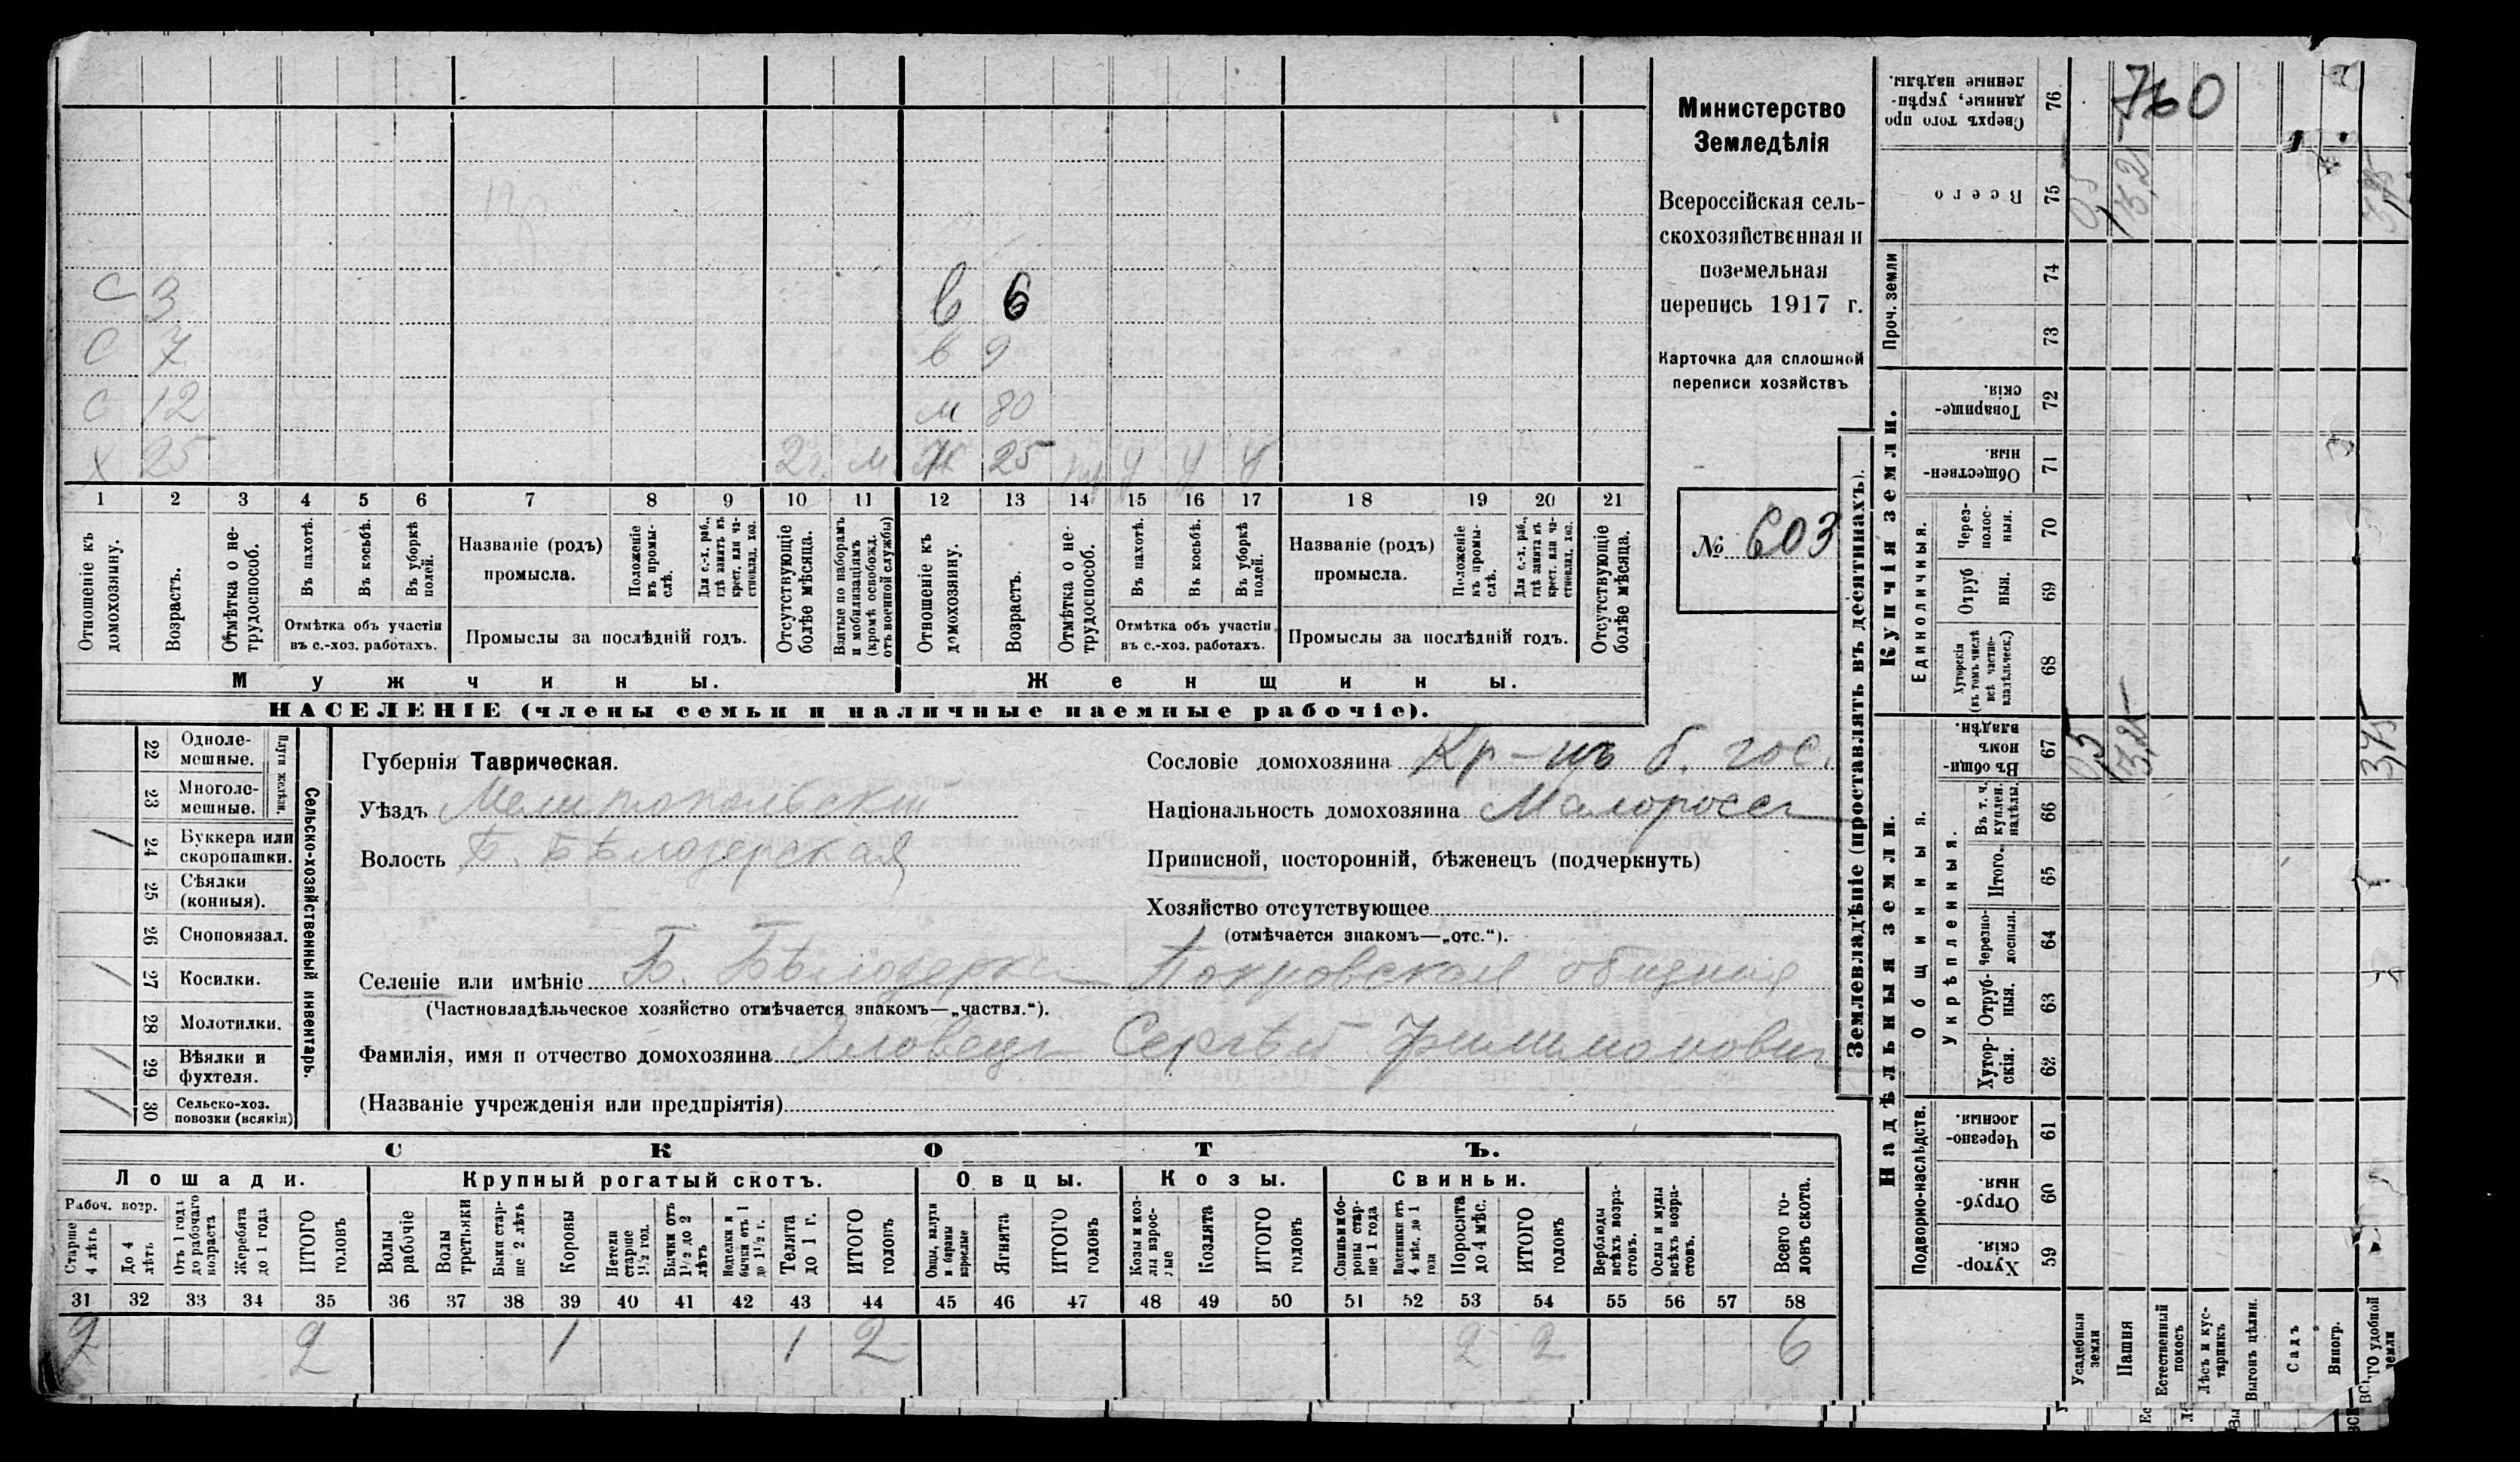 С 3 в 6
С 7 в 9
С 12 м 80
Х 25 2 г. м. Ж 25 У У У
1 2 3 4 5 6 7 8 9 10 11 12 13 14 15 16 17 18 19 20 21
Отношеніе къ домохозяину.
Возрастъ.
Отмѣтка о нетрудоспособ.
Въ пахотѣ.
Въ косьбѣ.
Въ уборкѣ полей.
Отмѣтка объ участіи въ с.-хоз. работахъ.
Названіе (родъ) промысла.
Положеніе въ промыслѣ.
Для с.-х. раб., гдѣ занятъ въ крест. или частновлад. хоз.
Промыслы за послѣдній годъ.
Отсутствующіе болѣе мѣсяца.
Взятые по наборамъ и мобилизаціямъ (кромѣ освобожд. отъ военной службы)
Отношеніе къ домохозяину.
Возрастъ.
Отмѣтка о нетрудоспособ.
Въ пахотѣ.
Въ косьбѣ.
Въ уборкѣ полей.
Отмѣтка объ участіи въ с.-хоз. работахъ.
Названіе (родъ) промысла.
Положеніе въ промыслѣ.
Для с.-х. раб., гдѣ занята въ крест. или частновлад. хоз.
Промыслы за послѣдній годъ.
Отсутствующіе болѣе мѣсяца.
Мужчины.
Женщины.
НАСЕЛЕНІЕ (члены семьи и наличные наемные рабочіе).
Министерство
Земледѣлія
Всероссійская сель-
скохозяйственная и
поземельная
перепись 1917 г.
Карточка для сплошной
переписи хозяйствъ
№ 603
22 Однолемешные.
23 Многолемешные.
Плуги желѣзн.
24 Буккера или скоропашки. /
25 Сѣялки (конныя).
26 Сноповязал.
27 Косилки. /
28 Молотилки.
29 Вѣялки и фухтеля. /
30 Сельско-хоз. повозки (всякія) /
Сельско-хозяйственный инвентарь.
Губернія Таврическая.
Уѣздъ Мелитопольскій
Волость Б. Бѣлозерская
Сословіе домохозяина Кр-нъ б. гос.
Національность домохозяина Малоросс
Приписной, посторонній, бѣженецъ (подчеркнуть)
Хозяйство отсутствующее
(отмѣчается знакомъ—„отс.“).
Селеніе или имѣніе Б. Бѣлозерка Покровская община
(Частновладѣльческое хозяйство отмѣчается знакомъ—„частвл.“).
Фамилія, имя и отчество домохозяина Яловецъ Сергѣй Филимонович
(Названіе учрежденія или предпріятія)
СКОТЪ.
Лошади. Крупный рогатый скотъ. Овцы. Козы. Свиньи.
Рабоч. возр.
Старше 4 лѣтъ
До 4 лѣтъ
Отъ 1 года до рабочаго возраста
Жеребята до 1 года
ИТОГО головъ
Волы рабочіе
Волы третьяки
Быки старше 2 лѣтъ
Коровы
Нетели старше 1½ год.
Бычки отъ 1½ до 2 лѣтъ
Неделки и бычки отъ 1 до 1½ г.
Телята до 1 г.
ИТОГО головъ
Овцы, валухи и бараны взрослые
Ягнята
ИТОГО головъ
Козы и козлы взрослые
Козлята
ИТОГО головъ
Свиньи и боровы старше 1 года
Подсвинки отъ 4 мѣс. до 1 года
Поросята до 4 мѣс.
ИТОГО головъ
Верблюды всѣхъ возрастовъ.
Ослы и мулы всѣхъ возрастовъ.
Всего головъ скота.
31 32 33 34 35 36 37 38 39 40 41 42 43 44 45 46 47 48 49 50 51 52 53 54 55 56 57 58
2 2 1 1 2 2 2 6
Землевладѣніе (проставлять въ десятинахъ).
Надѣльныя земли.
Купчія земли.
Проч. земли
Подворно-наслѣдств.
Общинныя.
Укрѣпленныя.
Единоличныя.
Сверхъ того проданные, укрѣпленные надѣлы. 76
Всего 75
74
73
Товарищескія. 72
Общественныя. 71
Черезполосныя. 70
Отрубныя. 69
Хуторскія (въ томъ числѣ всѣ частновладѣльческ.) 68
Въ общинномъ владѣн. 67
Въ т. ч. куплен. надѣлы. 66
Итого. 65
Черезполосныя. 64
Отрубныя. 63
Хуторскія. 62
Черезполосныя. 61
Отрубныя. 60
Хуторскія. 59
760
Усадебныя земли
Пашня
Естественный покосъ
Лѣсъ и кустарникъ
Выгонъ цѣлин.
Садъ
Виногр.